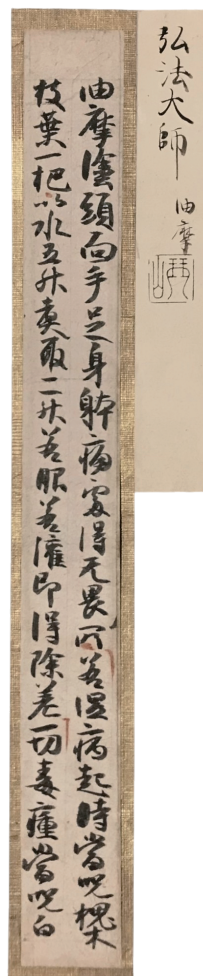 弘法大師
油摩
油摩塗頭面手足身躰痛處得无畏所若温病起時當呪槐木
枝葉一把以水五升煮取二升若服若灌即得除差一切毒瘇當呪白